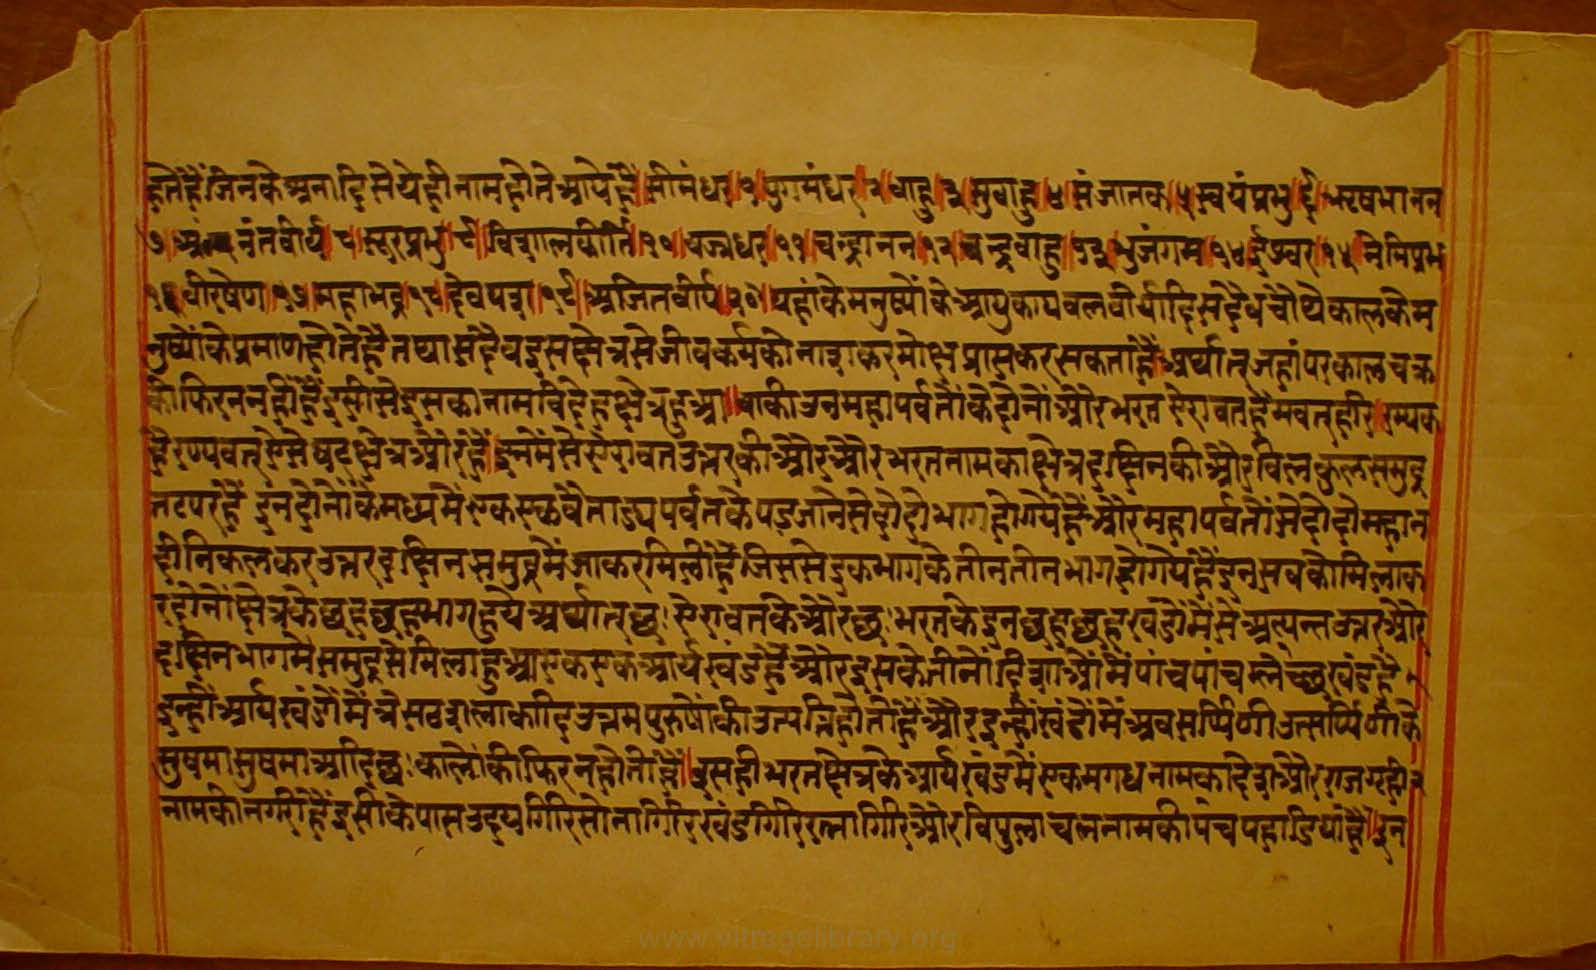 होते हैं जिनके अनादि से येही नाम होते आये हैं॥ सीमंधर॥१॥ युगमंधर॥२॥ बाहु॥३॥ सुबाहु॥४॥ संजातक॥५॥ स्वयंप्रभु॥६॥ ऋषभानन
७॥ अनंतवीर्य॥८॥ सूरप्रभु॥९॥ विशालकीर्ति॥१०॥ वज्रधर॥११॥ चन्द्रानन॥१२॥ चन्द्रबाहु॥१३॥ भुजंगम॥१४॥ ईश्वर॥१५॥ नेमिप्रभ
१६॥ वीरषेण॥१७॥ महाभद्र॥१८॥ देवयश॥१९॥ अजितवीर्य॥२०॥ यहां के मनुष्यों के आयु काय बल वीर्यादि सदैव चौथे काल के म
नुष्यों के प्रमाण होते हैं तथा सदैव इस क्षेत्र से जीव कर्म को नाश कर मोक्ष प्राप्त कर सकता है॥ अर्थात् जहां पर काल चक्र
की फिरन नहीं है इसी से इसका नाम विदेह क्षेत्र हुआ॥ बाकी उन महा पर्वतों के दोनों और भरत ऐरावत हैमवत् हरि रम्यक
हैरण्यवत् ऐसे षट क्षेत्र और हैं॥ इनमें से ऐरावत उत्तर की और और भरत नाम का क्षेत्र दक्षिन की और बिलकुल समुद्र
तट पर हैं इन दोनों के मध्य में एक एक वैताड्य पर्वत के पड जाने से दो दो भाग हो गये हैं और महा पर्वतों से दो दो महा न
दी निकल कर उत्तर दक्षिन समुद्र में जाकर मिली हैं जिससे इक भाग के तीन तीन भाग हो गये हैं इन सब को मिलाक
र दोनों क्षेत्र के छह छह भाग हुये अर्थात् छः ऐरावत के और छः भरत के इन छह छह खंडों में से अत्यन्त उत्तर और
दक्षिन भाग में समुद्र से मिला हुआ एक एक आर्य खंड है और इसके तीनों दिशाओं में पांच पांच म्लेच्छ खंड है
इन्हीं आर्य खंडों में त्रेसठ शलाकादि उत्तम पुरुषों की उत्पत्ति होती है और इन्हीं खंडों में अवसर्प्पिणी उत्सर्प्पिणी के
सुषमा सुषमा आदि छः कालों की फिरन होती है॥ इसही भरत क्षेत्र के आर्य खंड में एक मगध नाम क देश और राजगृही
नाम की नगरी है इसी के पास उदयगिरि सोनागिरि खंडगिरि रत्नागिरि और विपुलाचल नाम की पंच पहाडियां हैं॥ इन
www.vitragelibrary.org